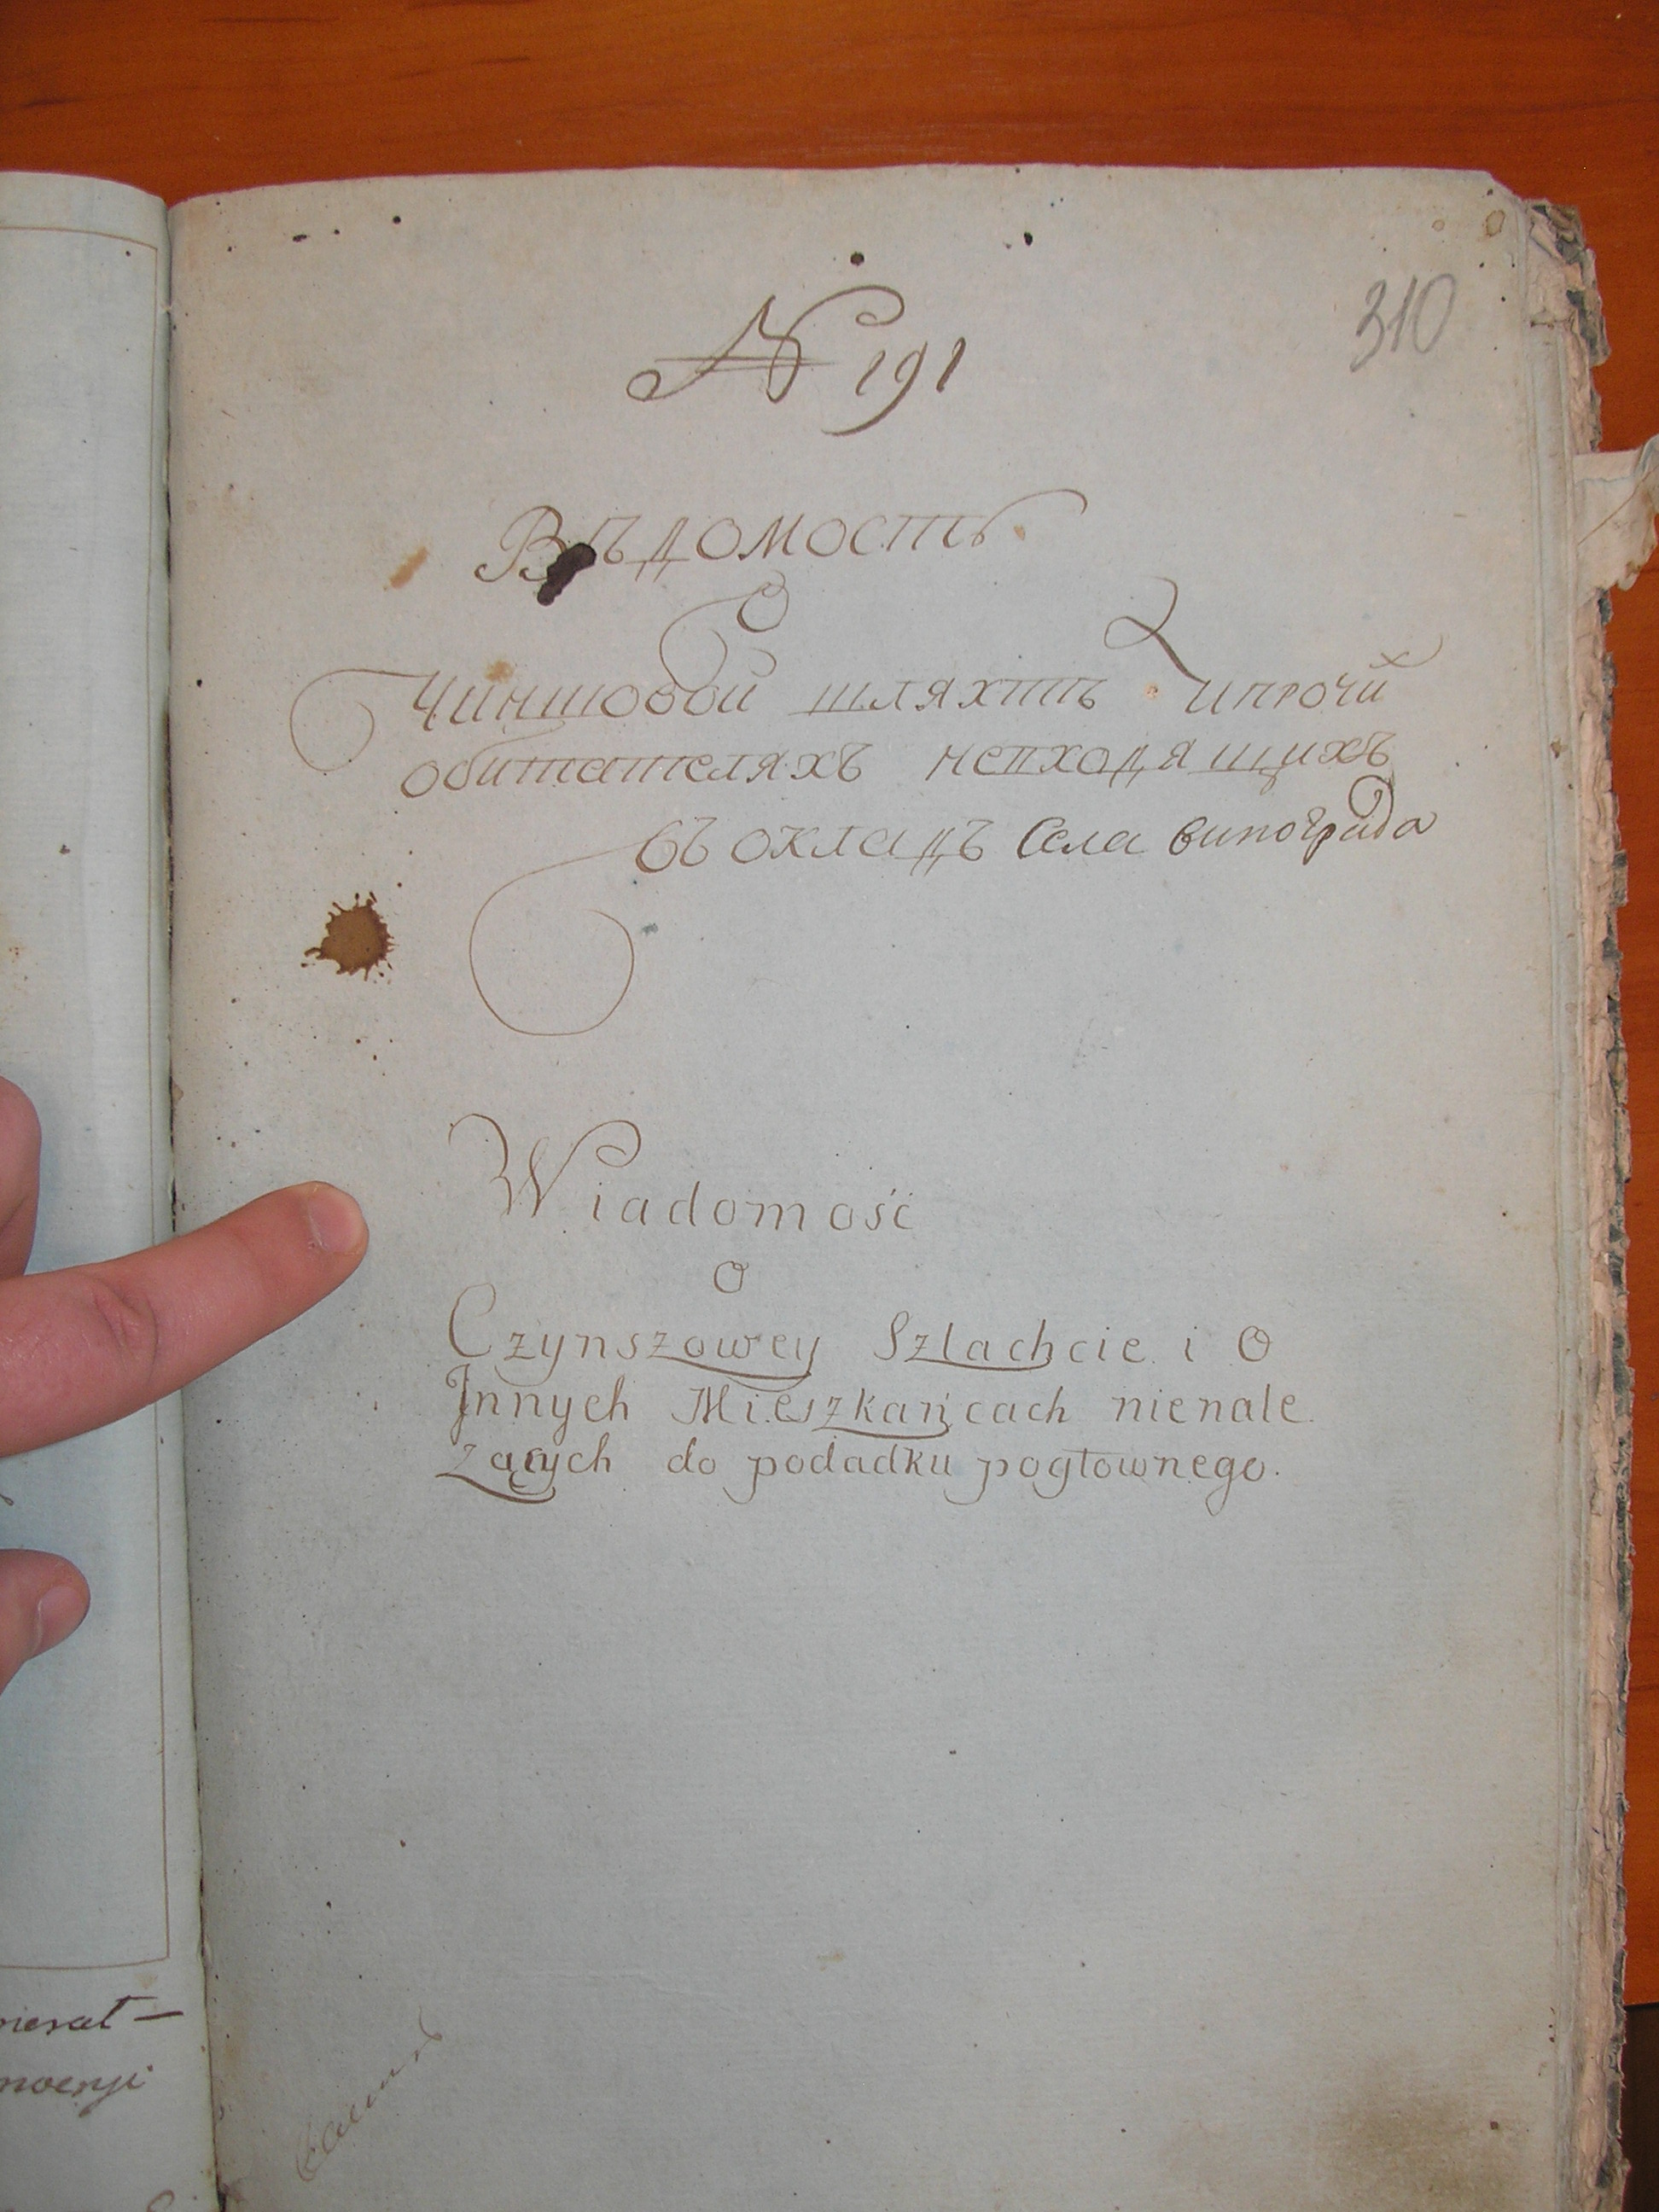 310
№ 191
Вѣдомость
О
Чиншовой шляхтѣ ипрочих
обитателяхъ невходящихъ
въ окладъ Села винограда
Wiadomość
O
Czynszowey Szlachcie i O
Innych Mieszkańcach nienale
żących do podadku pogłownego.